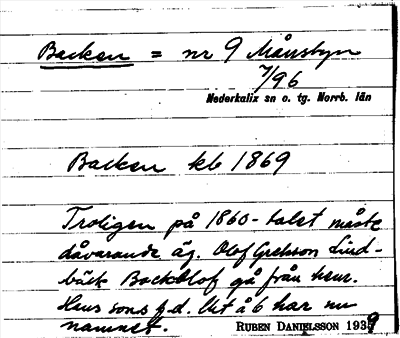 Backen = nr 9 Månsbyn
7/96
Nederkalix sn o. tg. Norrb. län
Backen kb 1869
Troligen på 1860-talet måste
dåvarande äg. Olof Grelsson Lind-
bäck Back Olof gå från hem.
Hans sons f.d. lit å 6 har nu
namnet.
RUBEN DANIELSSON 1939